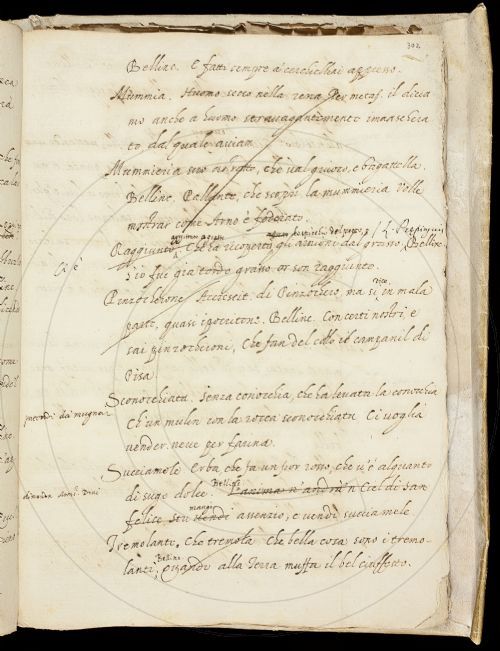 302
Belline. E fatti sempre a cerchellai appieno.
Mummia. Huomo secco nella rena. Per metaf. il dicia
mo anche a huomo stravagantemente immaschera
to, dal quale aviam
Mummieria
che val giuoco, e bagattella.
Belline. Pallante, che scoprì la mummieria Volle
mostrar come Arno è foderato.
Raggiunto. Che ha ricoperti gli arnioni dal grasso. Belline.
Ci è
S'io fui già tordo grasso or son raggiunto.
Pinzochione. Accrescit. di Pinzochio, ma si in mala
parte, quasi ipocritone. Belline. Con certi nostri, e
sai pinzochioni, Che fan del collo il campanil di
Pisa
Sconocchiata. Senza conocchia, che ha levata la conocchia
Ch'un mulin con la rocca sconocchiata Ci voglia
vender neve per farina.
Succiamele Erba che fa un fior rosso, che v'è alquanto
di sugo dolce. Belline L'anima n'andrà 'n Ciel di San
felice, stu mangi assenzio, e vendi succia mele
Tremolanti. Che tremola Che bella cosa sono i tremo-
lanti, Belline
alla Terra muffa il bel ciuffetto.